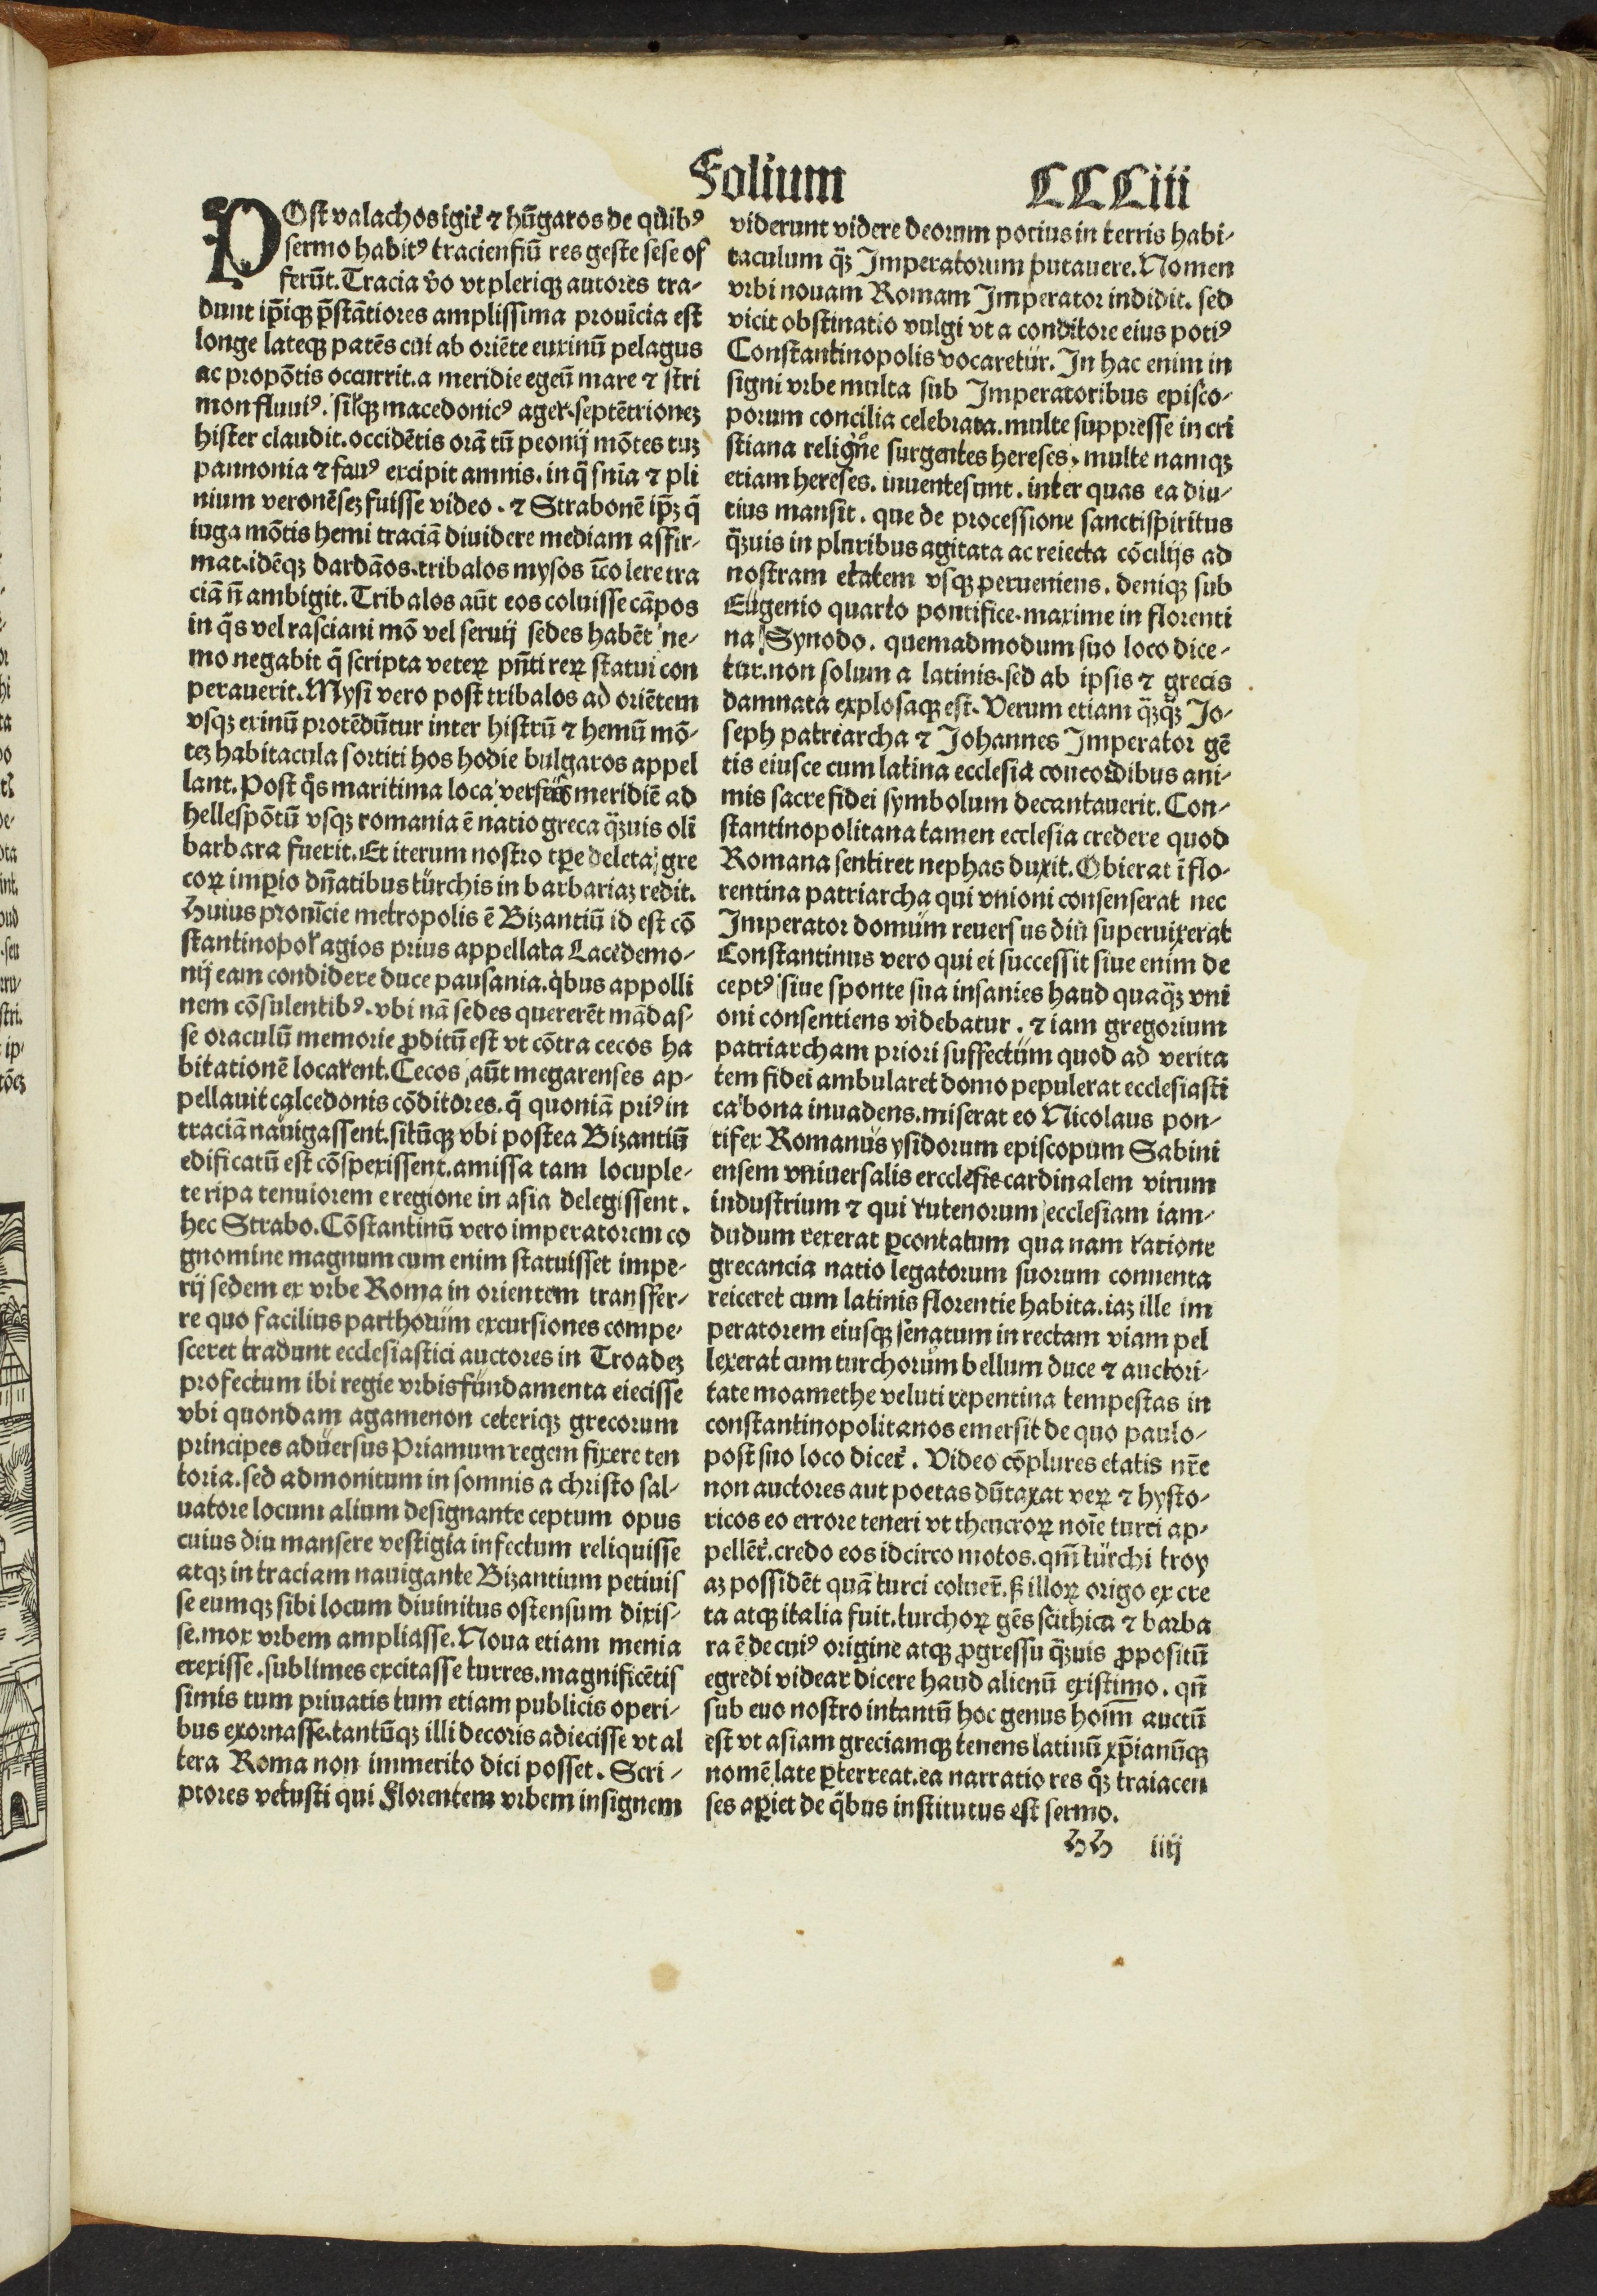 Folium CCCiii
POst valachos igit̃ ⁊ hũgaros de quibꝰ
sermo habitꝰ tracienſiũ res geſte ſeſe of
ferũt. Tracia ṽo vt pleriqꝫ autores tra-
dunt ip̃iqꝫ p̃ſtãtiores ampliſſima prouĩcia eſt
longe lateqꝫ patẽs cui ab oriẽte euxinũ pelagus
ac propõtis occurrit. a meridie egeũ mare ⁊ ſtri
mon fluuiꝰ. ſił'qꝫ macedonicꝰ ager. ſeptẽtrioneꝫ
hiſter claudit. occidẽtis orã tũ peonij mõtes tuꝫ
pannonia ⁊ ſauꝰ excipit amnis. in q̃ ſnĩa ⁊ pli
nium veronẽſeꝫ fuiſſe video. ⁊ Strabonẽ ip̃ꝫ q̃
iuga mõtis hemi traciã diuidere mediam affir-
mat. idẽqꝫ dardãos. tribalos myſos ĩcolere tra
ciã ñ ambigit. Tribalos aũt eos coluiſſe cãpos
in q̃s vel raſciani mõ vel ſeruij ſedes habẽt ne-
mo negabit q̃ ſcripta veteꝝ pñti reꝝ ſtatui con
perauerit. Myſi vero poſt tribalos ad oriẽtem
vſqꝫ exinũ protẽdũtur inter hiſtrũ ⁊ hemũ mõ-
teꝫ habitacula ſortiti hos hodie bulgaros appel
lant. Poſt q̃s maritima loca verſus meridiẽ ad
helleſpõtũ vſqꝫ romania ẽ natio greca q̃ꝫuis oli
barbara fuerit. Et iterum noſtro tꝑe deleta gre
coꝝ imꝑio dñatibus turchis in barbariaꝫ redit.
Huius prouĩcie metropolis ẽ Bizantiũ id eſt cõ
ſtantinopoł' agios prius appellata Lacedemo-
nij eam condidere duce pauſania. q̃bus appolli
nem cõſulentibꝰ. vbi nã ſedes quererẽt mãdaſ-
ſe oraculũ memorie ꝓditũ eſt vt cõtra cecos ha
bitationẽ locarent. Cecos aũt megarenſes ap-
pellauit calcedonis cõditores. q̃ quoniã priꝰ in
traciã nauigaſſent. ſitũqꝫ vbi poſtea Bizantiũ
edificatũ eſt cõſpexiſſent. amiſſa tam locuple-
te ripa tenuiorem e regione in aſia delegiſſent.
hec Strabo. Cõſtantinũ vero imperatorem co
gnomine magnum cum enim ſtatuiſſet impe-
rij ſedem ex vrbe Roma in orientem tranſfer-
re quo facilius parthorum excurſiones compe-
ſceret tradunt eccleſiaſtici auctores in Troadeꝫ
profectum ibi regie vrbis fundamenta eieciſſe
vbi quondam agamenon ceteriqꝫ grecorum
principes aduerſus Priamum regem fixere ten
toria. ſed admonitum in ſomnis a chriſto ſal-
uatore locum alium deſignante ceptum opus
cuius diu manſere veſtigia infectum reliquiſſe
atqꝫ in traciam nauigante Bizantium petiuiſ
ſe eumqꝫ ſibi locum diuinitus oſtenſum dixiſ-
ſe. mox vrbem ampliaſſe. Noua etiam menia
erexiſſe. ſublimes excitaſſe turres. magnificẽtiſ
ſimis tum priuatis tum etiam publicis operi-
bus exornaſſe. tantũqꝫ illi decoris adieciſſe vt al
tera Roma non immerito dici poſſet. Scri-
ptores vetuſti qui Florentem vrbem inſignem
viderunt videre deorum potius in terris habi-
taculum q̃ꝫ Imperatorum putauere. Nomen
vrbi nouam Romam Imperator indidit. ſed
vicit obſtinatio vulgi vt a conditore eius potiꝰ
Conſtantinopolis vocaretur. In hac enim in
ſigni vrbe multa ſub Imperatoribus epiſco-
porum concilia celebrata. multe ſuppreſſe in cri
ſtiana religñe ſurgentes hereſes. multe namqꝫ
etiam hereſes. inuente ſunt. inter quas ea diu-
tius manſit. que de proceſſione ſancti ſpiritus
q̃ꝫuis in pluribus agitata ac reiecta cõcilijs ad
noſtram etatem vſqꝫ perueniens. deniqꝫ ſub
Eugenio quarto pontifice. maxime in florenti
na Synodo. quemadmodum ſuo loco dice-
tur. non ſolum a latinis. ſed ab ipſis ⁊ grecis
damnata exploſaqꝫ eſt. Verum etiam q̃ꝫq̃ꝫ Jo-
ſeph patriarcha ⁊ Johannes Imperator gẽ
tis eiuſce cum latina eccleſia concordibus ani-
mis ſacre fidei ſymbolum decantauerit. Con-
ſtantinopolitana tamen eccleſia credere quod
Romana ſentiret nephas duxit. Obierat ĩ flo-
rentina patriarcha qui vnioni conſenſerat nec
Imperator domum reuerſus diu ſuperuixerat
Conſtantinus vero qui ei ſucceſſit ſiue enim de
ceptꝰ ſiue ſponte ſua inſanies haud quaq̃ꝫ vni
oni conſentiens videbatur. ⁊ iam gregorium
patriarcham priori ſuffectum quod ad verita
tem fidei ambularet domo pepulerat eccleſiaſti
ca bona inuadens. miſerat eo Nicolaus pon-
tifex Romanus yſidorum epiſcopum Sabini
enſem vniuerſalis ercclefie cardinalem virum
induſtrium ⁊ qui rutenorum eccleſiam iam-
dudum rexerat ꝑcontatum qua nam ratione
grecancia natio legatorum ſuorum conuenta
reiceret cum latinis florentie habita. iaꝫ ille im
peratorem eiuſqꝫ ſenatum in rectam viam pel
lexerat cum turchorum bellum duce ⁊ auctori-
tate moamethe veluti repentina tempeſtas in
conſtantinopolitanos emerſit de quo paulo-
poſt ſuo loco dicet̃. Video cõplures etatis nr̃e
non auctores aut poetas dũtaxat veꝝ ⁊ hyſto-
ricos eo errore teneri vt theucroꝝ noĩe turci ap-
pellẽt̃. credo eos idcirco motos. qm̃ turchi troy
aꝫ poſſidẽt quã turci coluer̃. ꝭ illoꝝ origo ex cre
ta atqꝫ italia fuit. turchoꝝ gẽs ſcithica ⁊ barba
ra ẽ de cuiꝰ origine atqꝫ ꝓgreſſu q̃ꝫuis ꝓpoſitũ
egredi videar dicere haud alienũ exiſtimo. qñ
ſub euo noſtro intantũ hoc genus hoĩm auctũ
eſt vt aſiam greciamqꝫ tenens latinũ xp̃ianũqꝫ
nomẽ late ꝑterreat. ea narratio res q̃ꝫ traiacen
ſes aꝑiet de q̃bus inſtitutus eſt ſermo.
HH iiij